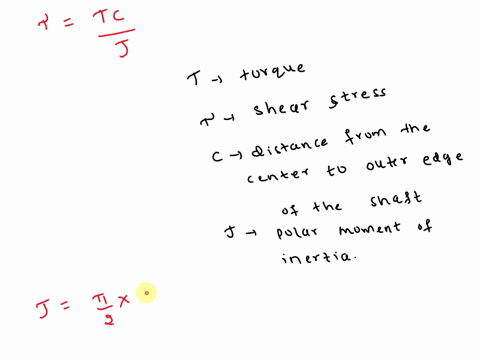 τ = Tc/J
T → torque
τ → shear stress
C → distance from the
center to outer edge
of the shaft
J → polar moment of
inertia.
J = π/2 ×